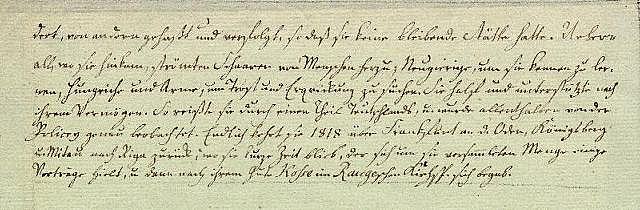 dert, von andern gehaßt und verfolgt, so daß sie keine bleibende Stätte hatte. Ueber-
all, wo sie hinkam, strömten Schaaren von Menschen herzu; Neugierige, um sie kennen zu ler-
nen, Hungrige und Arme, um Trost und Erquickung zu suchen. Sie half und unterstützte nach
ihrem Vermögen. So reißte sie durch einen Theil Teutschlands, u. wurde allenthalben von der
Policey genau beobachtet. Endlich kehrt sie 1818 über Frankfurt an d. Oder, Königsberg
u. Mitau nach Riga zurück, wo sie kurze Zeit blieb, der sich um sie versammleten Menge einige
Vorträge hielt, u. dann nach ihrem Gute Kosse im Raugeschen Kirchsp. sich begab.